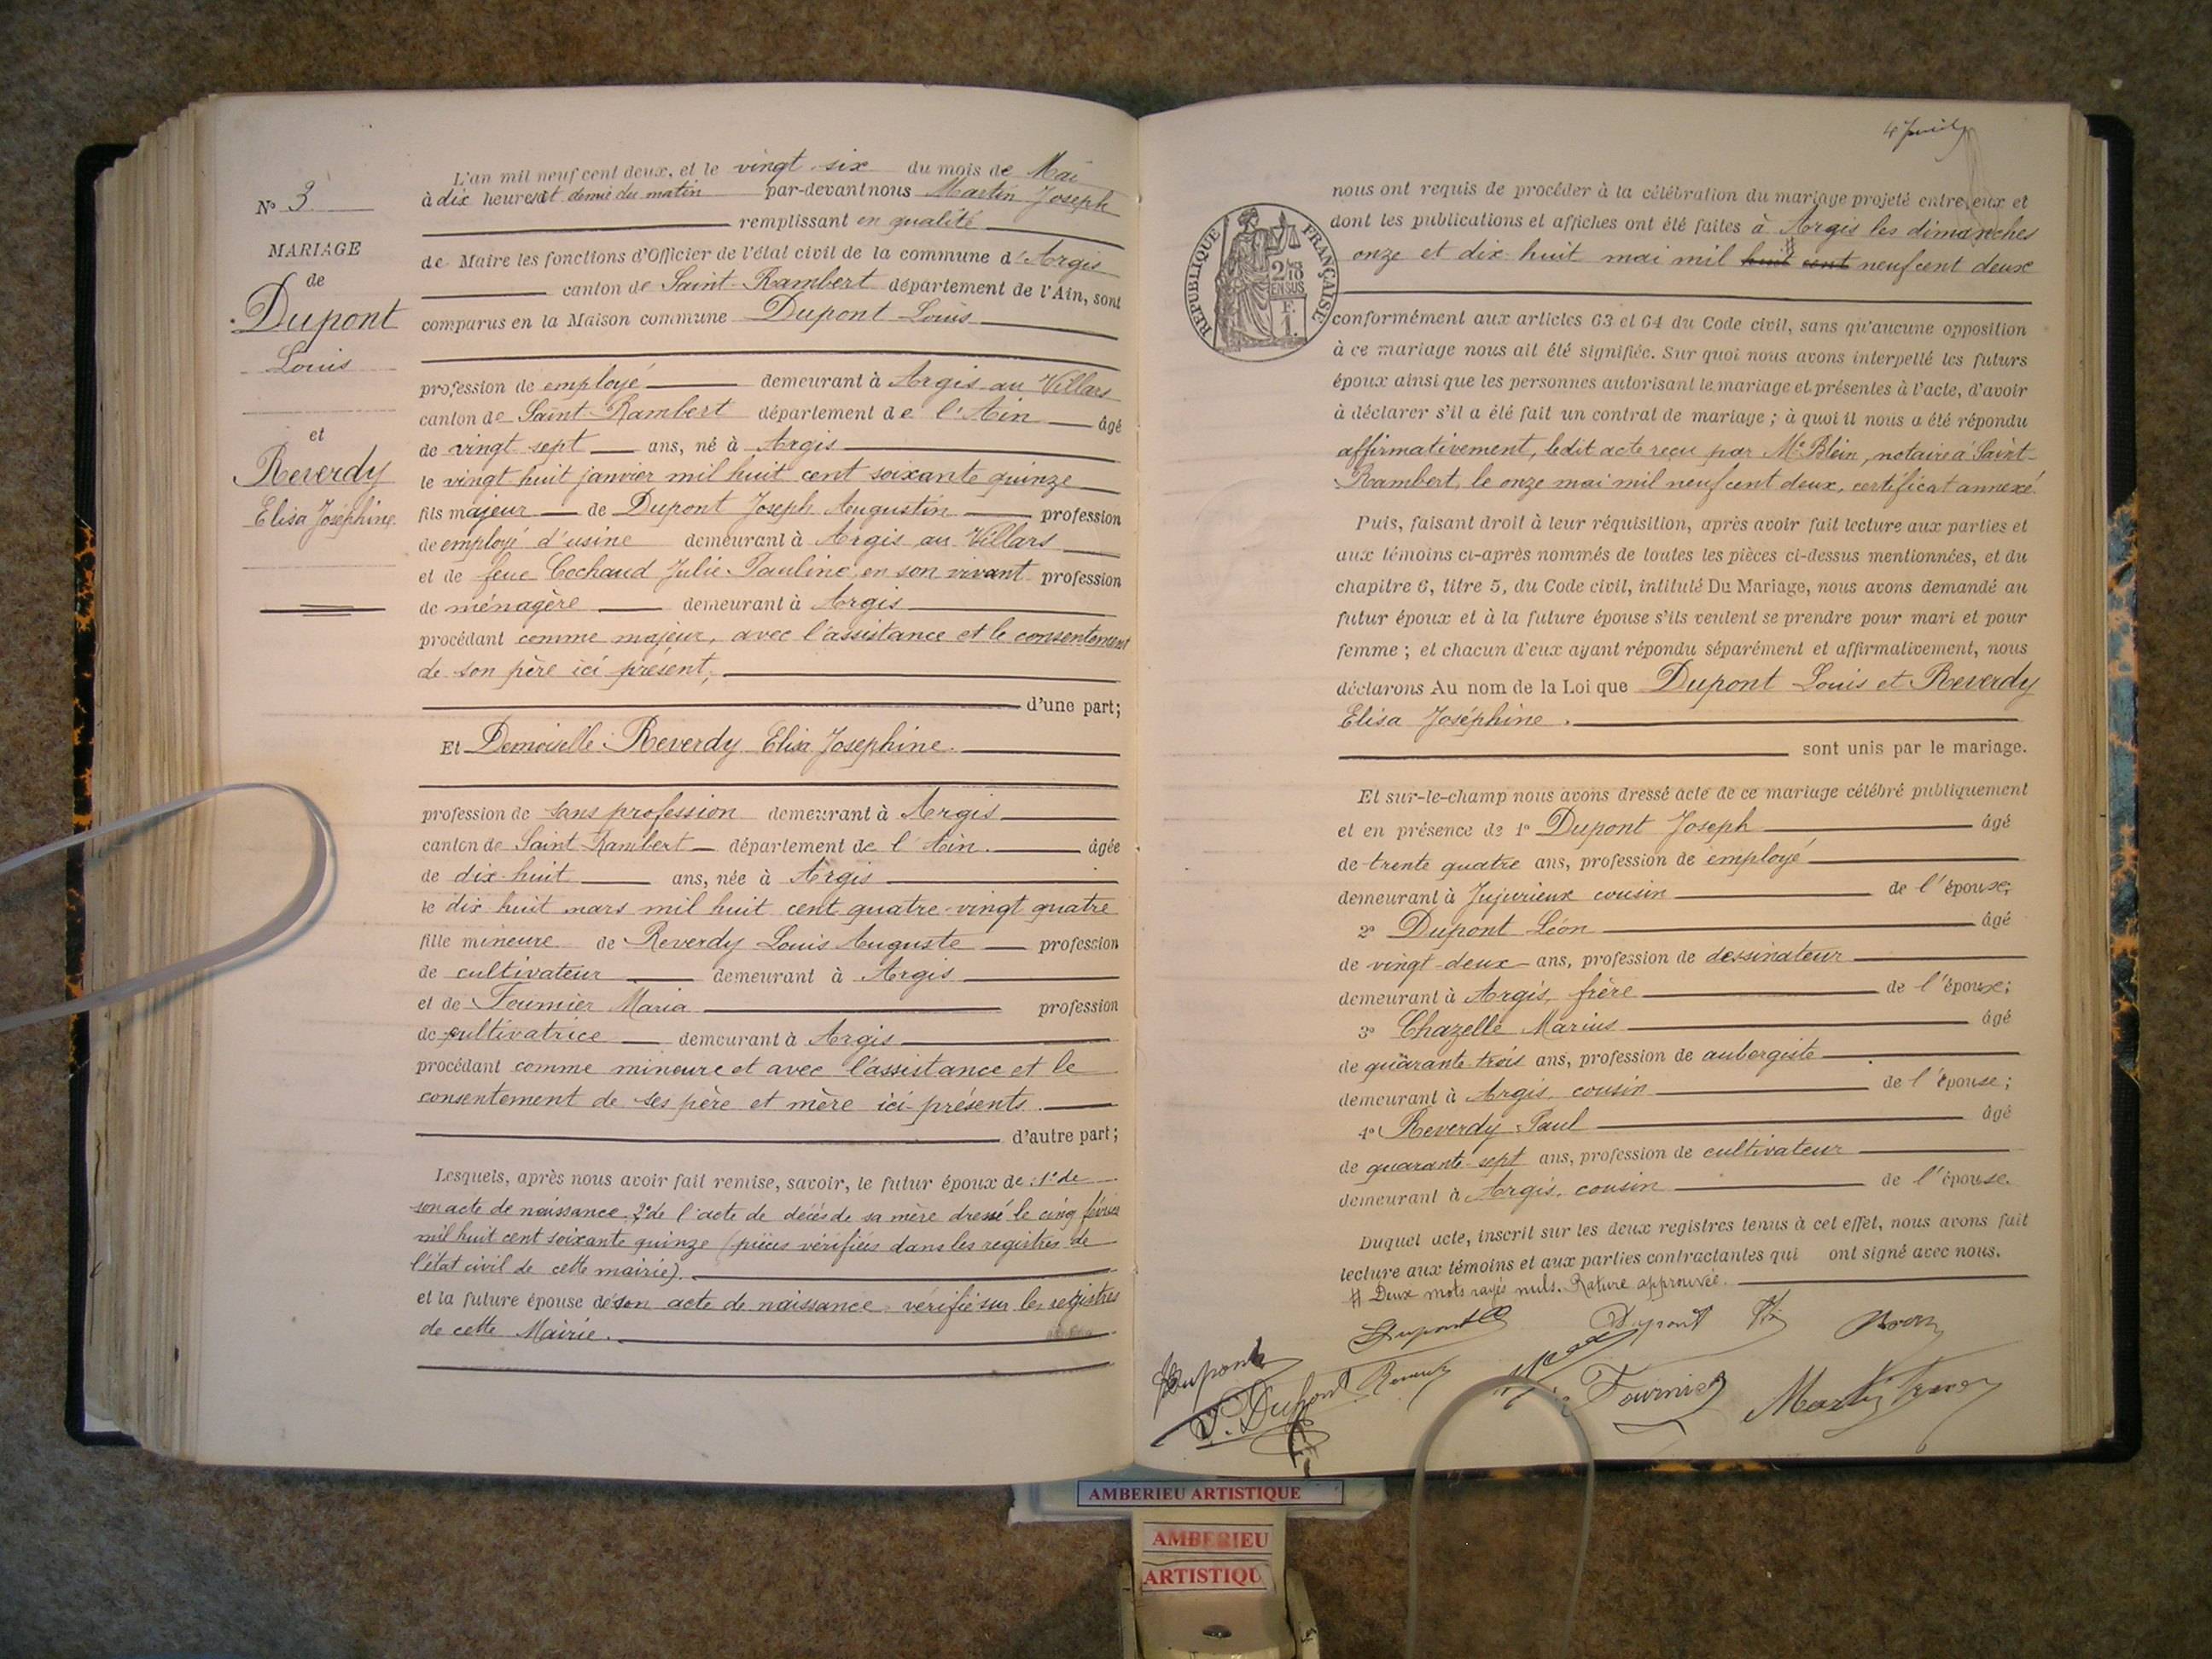 N° 3
MARIAGE
de
Dupont
Louis
et
Reverdy
Elisa Joséphine
L'an mil neuf cent deux, et le vingt-six du mois de Mai
à dix heures et demie du matin par-devant nous Martin Joseph
remplissant en qualité
de Maire les fonctions d'Officier de l'état civil de la commune d'Argis
canton de Saint-Rambert département de l'Ain, sont
comparus en la Maison commune Dupont Louis
profession de employé demeurant à Argis au Villars
canton de Saint-Rambert département de l'Ain âgé
de vingt-sept ans, né à Argis
le vingt huit janvier mil huit cent soixante quinze
fils majeur de Dupont Joseph Augustin profession
de employé d'usine demeurant à Argis au Villars
et de feue Cochaud Julie-Pauline, en son vivant profession
de ménagère demeurant à Argis
procédant comme majeur, avec l'assistance et le consentement
de son père ici présent,
d'une part;
Et Demoiselle Reverdy Elisa Josephine.
profession de sans profession demeurant à Argis
canton de Saint Rambert département de l'Ain. âgée
de dix-huit ans, née à Argis
le dix huit mars mil huit cent quatre-vingt quatre
fille mineure de Reverdy Louis Auguste profession
de cultivateur demeurant à Argis
et de Fournier Maria profession
de cultivatrice demeurant à Argis
procédant comme mineure et avec l'assistance et le
consentement de ses père et mère ici présents.
d'autre part;
Lesquels, après nous avoir fait remise, savoir, le futur époux de 1° de
son acte de naissance, 2° de l'acte de décès de sa mère dressé le cinq février
mil huit cent soixante quinze (pièces vérifiées dans les registres de
l'état civil de cette mairie).
et la future épouse de son acte de naissance vérifié sur les registres
de cette Mairie.
nous ont requis de procéder à la célébration du mariage projeté entre eux et
dont les publications et affiches ont été faites à Argis les dimanches
onze et dix-huit mai mil huit cent neuf cent deux
REPUBLIQUE FRANÇAISE
2/10
EN SUS
F.
1.
conformément aux articles 63 et 64 du Code civil, sans qu'aucune opposition
à ce mariage nous ait été signifiée. Sur quoi nous avons interpellé les futurs
époux ainsi que les personnes autorisant le mariage et présentes à l'acte, d'avoir
à déclarer s'il a été fait un contrat de mariage; à quoi il nous a été répondu
affirmativement, ledit acte reçu par Me Blein, notaire à Saint-
Rambert, le onze mai mil neuf cent deux, certificat annexé.
Puis, faisant droit à leur réquisition, après avoir fait lecture aux parties et
aux témoins ci-après nommés de toutes les pièces ci-dessus mentionnées, et du
chapitre 6, titre 5, du Code civil, intitulé Du Mariage, nous avons demandé au
futur époux et à la future épouse s'ils veulent se prendre pour mari et pour
femme; et chacun d'eux ayant répondu séparément et affirmativement, nous
déclarons Au nom de la Loi que Dupont Louis et Reverdy
Elisa Joséphine.
sont unis par le mariage.
Et sur-le-champ nous avons dressé acte de ce mariage célébré publiquement
et en présence de 1° Dupont Joseph âgé
de trente quatre ans, profession de employé
demeurant à Jujurieux cousin de l'épouse;
2° Dupont Léon âgé
de vingt-deux ans, profession de dessinateur
demeurant à Argis, frère de l'époux;
3° Chazelle Marius âgé
de quarante-trois ans, profession de aubergiste
demeurant à Argis, cousin de l'épouse;
4° Reverdy Paul âgé
de quarante-sept ans, profession de cultivateur
demeurant à Argis, cousin de l'épouse.
Duquel acte, inscrit sur les deux registres tenus à cet effet, nous avons fait
lecture aux témoins et aux parties contractantes qui ont signé avec nous.
# Deux mots rayés nuls. Rature approuvée.
Dupont
Dupont
Dupont
Dupont
Fournier
Martin
AMBERIEU ARTISTIQUE
AMBERIEU
ARTISTIQU